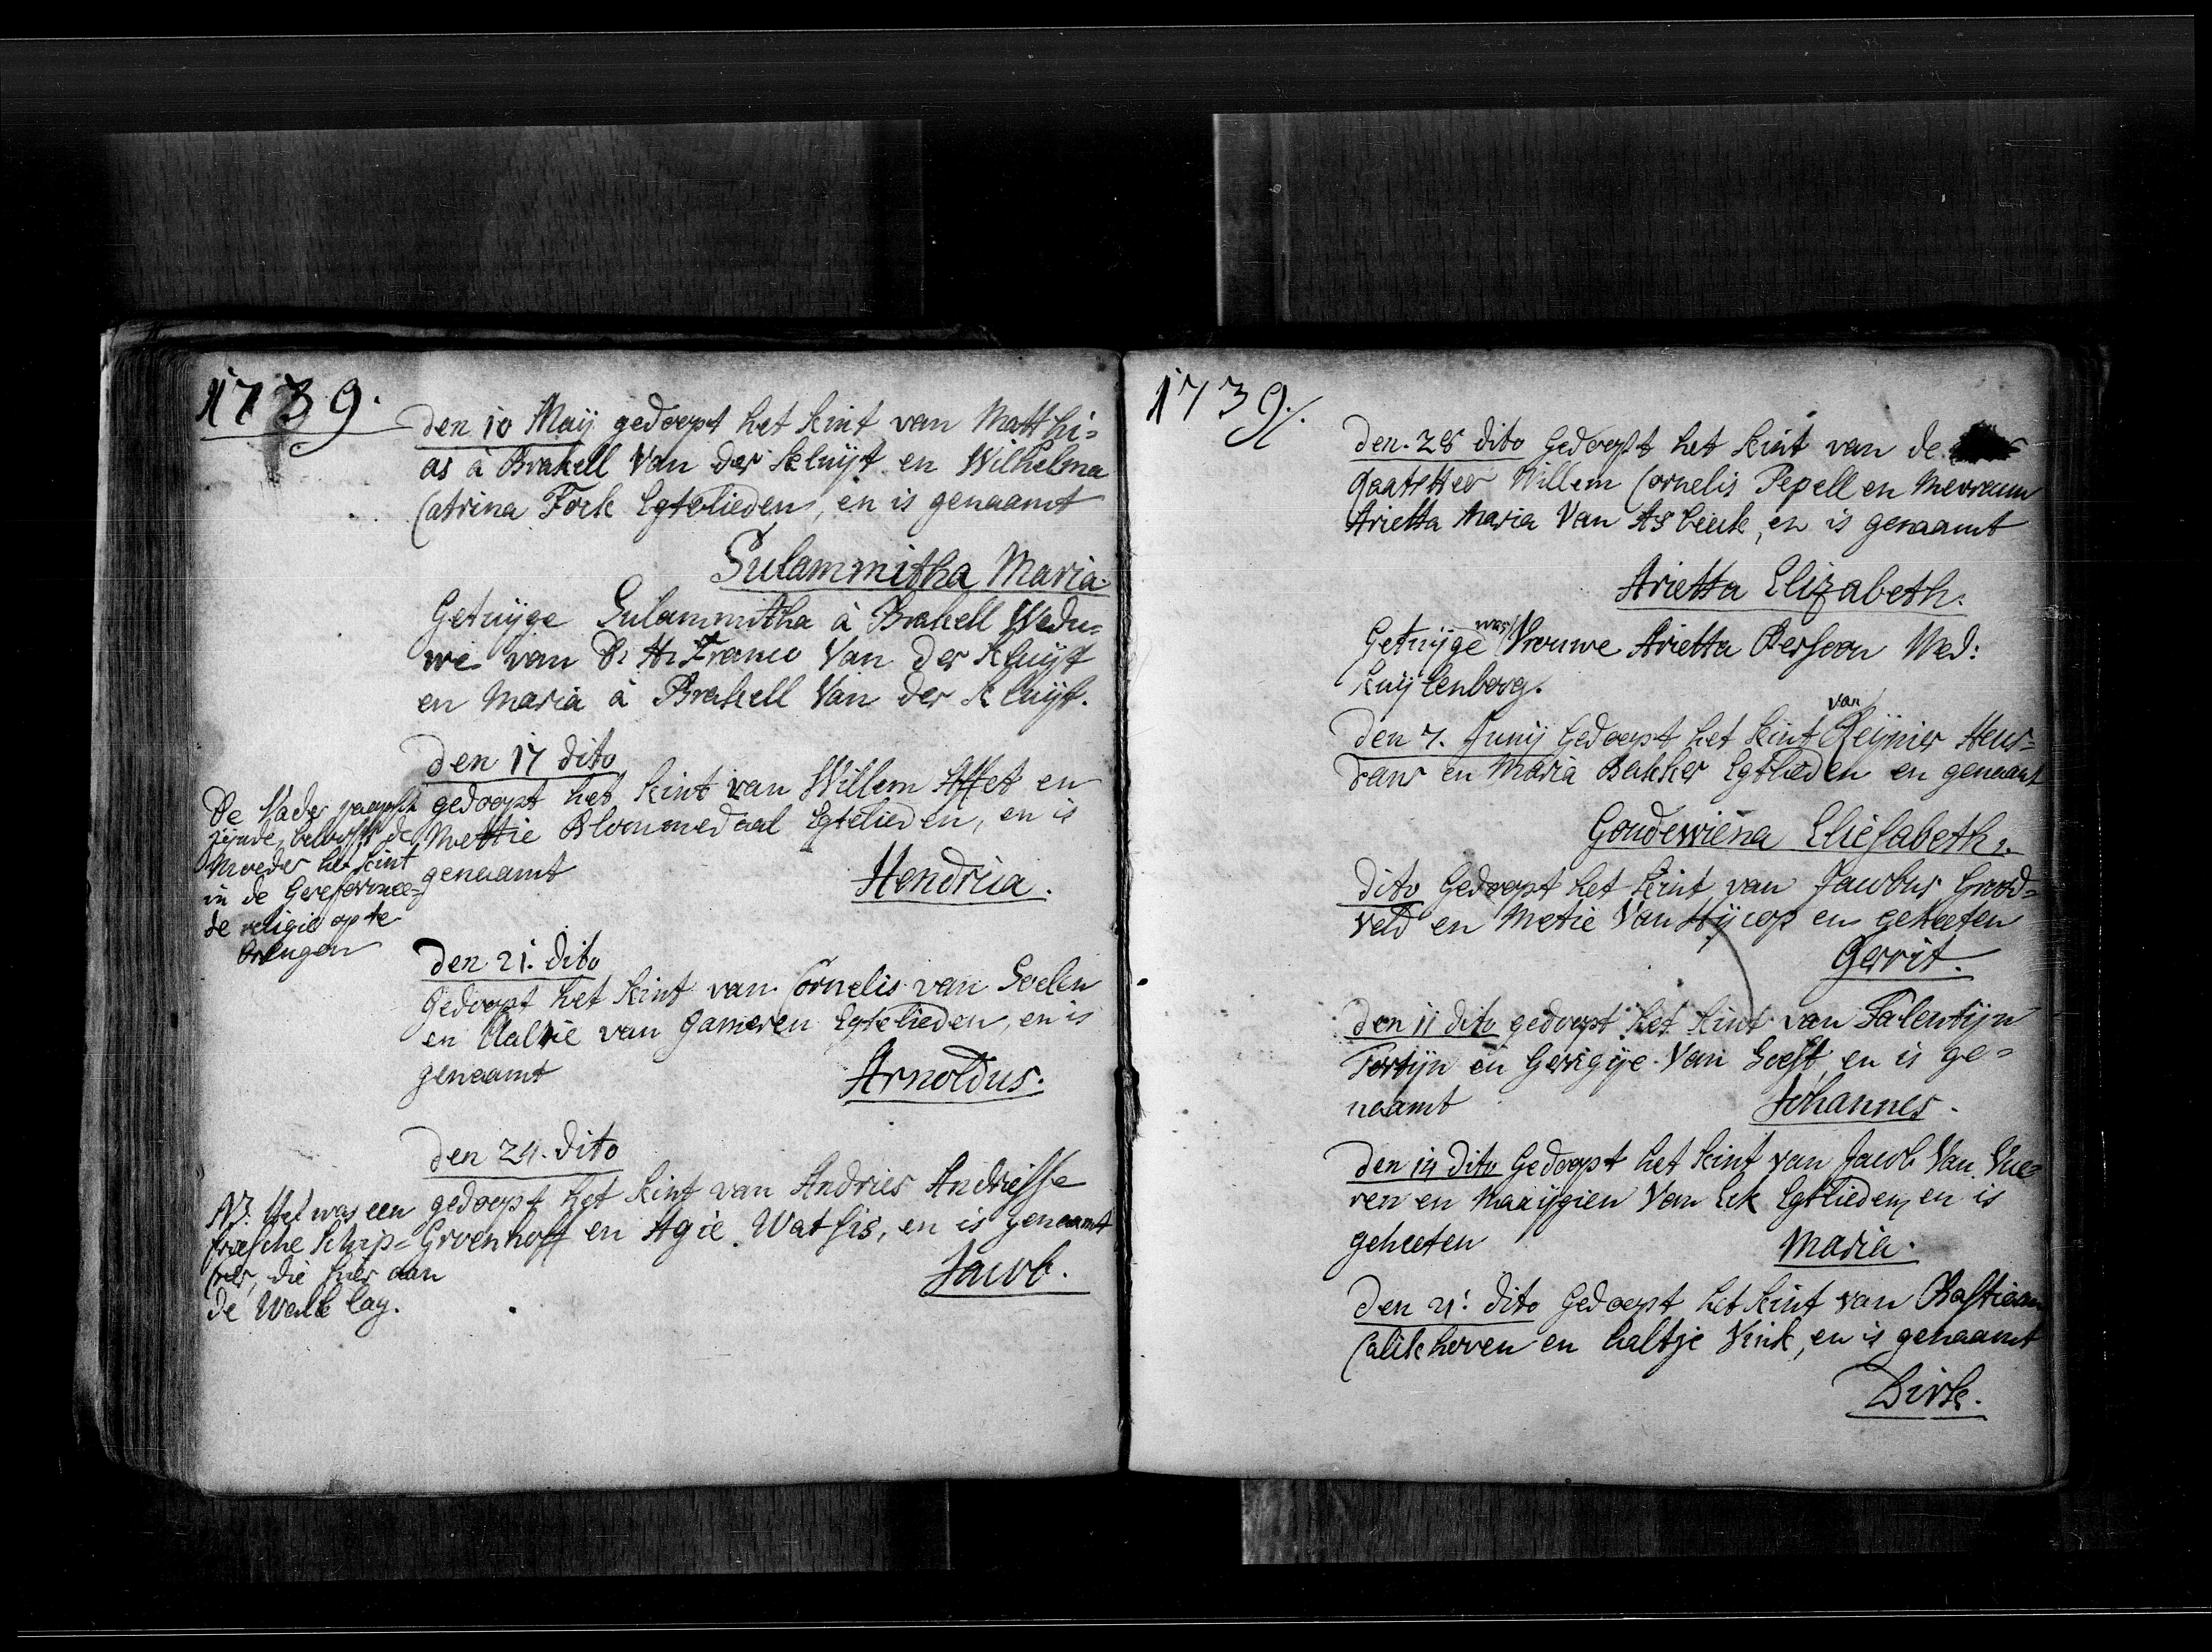 1739.
den 10 Maij gedoopt het kint van Matthi=
as à Brakell Van der Kluijt en Wilhelma
Catrina Fock Egtelieden, en is genaamt
Sulammitha Maria.
Getuijge Sulammitha à Brakell Wedu=
we van Franco Van der Kluijt
en Maria à Brakell Van der Kluijt.
den 17 dito
gedoopt het kint van Willem en
Mettie Bloommedaal Egtelieden, en is
genaamt
Hendrica.
De Vader paepsch
zijnde, belooft de
Moeder het kint
in de Gereformee=
de religie op te
brengen
den 21. dito
gedoopt het kint van Cornelis van Soelen
en Aaltie van Gameren Egtelieden, en is
genaamt
Arnoldus.
den 24. dito
gedoopt het kint van Andries Andriesse
Groenhoff en Agie Watsis, en is genaamt
Jacob.
NB. Het was een
friesche Schip=
per, die hier aan
de Walk lag.
1739.
den. 28 dito Gedoopt het kint van de
Heer Willem Cornelis Pepell en Mevrouw
Arietta Maria Van Asbeuk, en is genaamt
Arietta Elizabeth.
Getuijge was Vrouwe Arietta Persoon Wed:
Kuijlenborg.
den 7. Junij Gedoopt het kint van Reijnier Heus=
dans en Maria Bakker Egtlieden en genaamt
Goudewiena Eliesabeth.
dito Gedoopt het kint van Jacobus Groot=
veld en Metie Van Hijcop en geheeten
Gerrit.
den 11 dito gedoopt het kint van Falentijn
Fortijn en Gerrigije Van Soest, en is ge=
naamt
Johannes.
den 14 dito Gedoopt het kint van Jacob Van Vue=
ren en Maaijgien Van Eck Egtlieden en is
geheeten
Maria.
den 21. dito Gedoopt het kint van Bastiaan
Calikhoven en Caltje Vink, en is genaamt
Dirk.